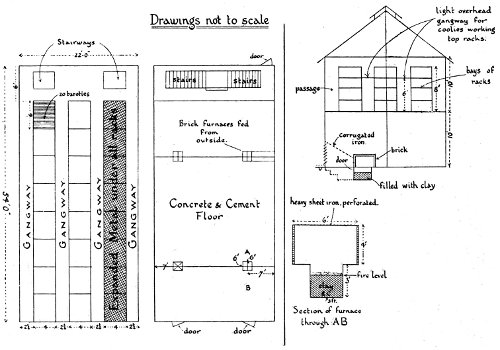 Drawings not to scale
Stairways
22'-0"
20 taretles
6'
54'-0"
GANGWAY
GANGWAY
Expanded Metal under all racks
GANGWAY
2½
4
2½
4
2½
4
2½
door
stairs
stairs
Brick furnaces fed
from
outside.
Concrete & Cement
Floor
A
6'
6'
7'
7'
B
door
door
light overhead
gangway for
coolies working
top racks.
passage
bays of
racks
6'
8'
10'
10'
corrugated
iron.
door
brick
filled with clay
heavy sheet iron, perforated.
6'
4'
fire level
3'
clay
3ft.
Section of furnace
through AB